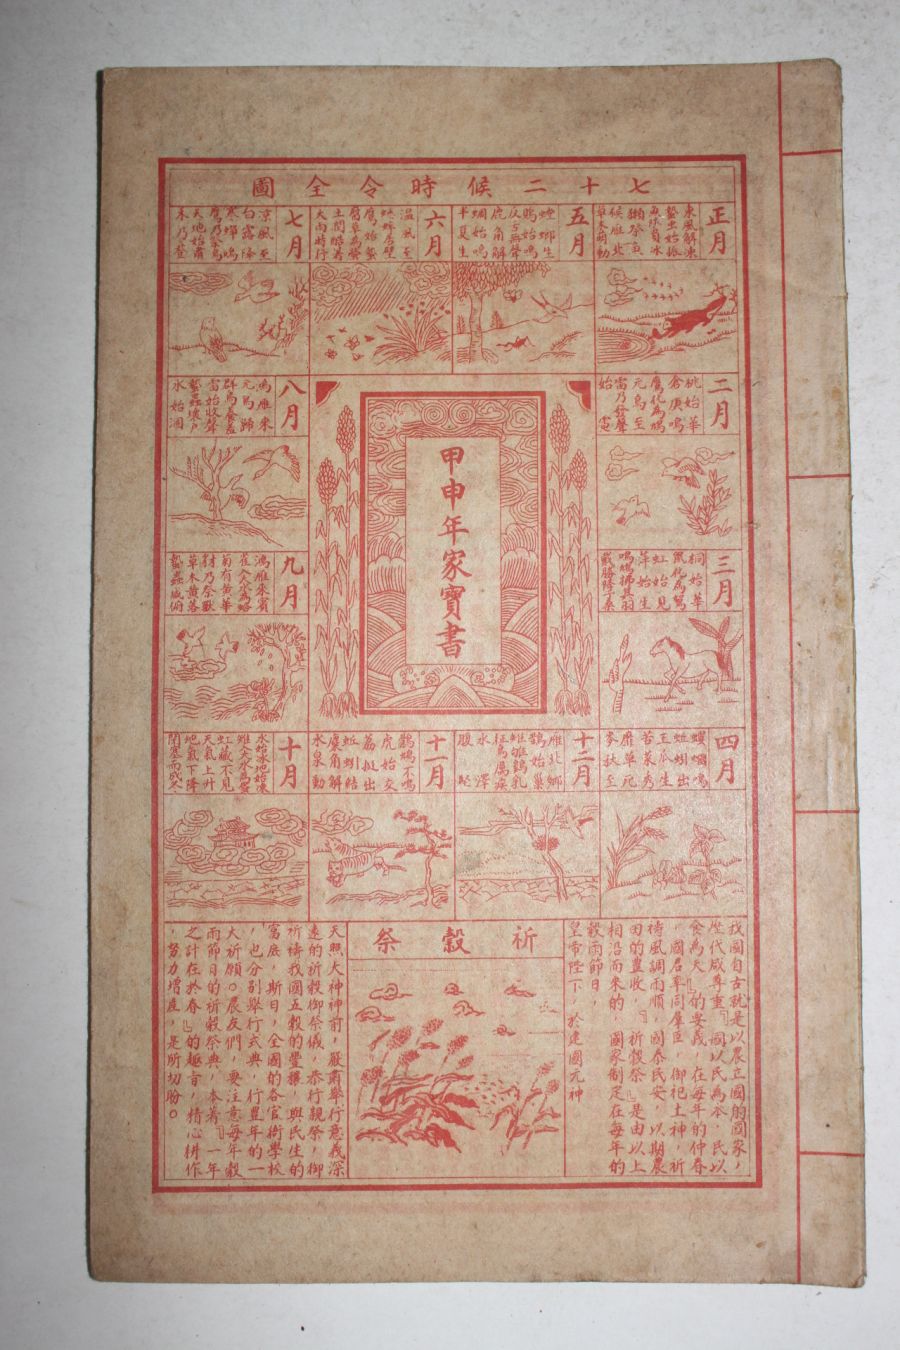 七十二候時令全圖
正月
東風解凍
蟄虫始振
魚陟負冰
獺祭魚
候雁北
草木萌動
二月
桃始華
倉庚鳴
鷹化為鳩
元鳥至
雷乃發聲
始電
三月
桐始華
鼠化為鴽
虹始見
萍始生
鳴鳩拂其羽
戴勝降于桑
四月
螻蟈鳴
蚯蚓出
王瓜生
苦菜秀
靡草死
麥秋至
五月
螳螂生
鵙始鳴
反舌無聲
鹿角解
蜩始鳴
半夏生
六月
溫風至
蟋蟀居壁
鷹始摯
腐草為螢
土潤溽暑
大雨時行
七月
涼風至
白露降
寒蟬鳴
鷹乃祭鳥
天地始肅
禾乃登
八月
鴻雁來
元鳥歸
群鳥養羞
雷始收聲
蟄蟲壞戶
水始涸
九月
鴻雁來賓
雀入大水為蛤
菊有黃華
豺乃祭獸
草木黃落
蟄蟲咸俯
十月
水始冰地始凍
雉入大水為蜃
虹藏不見
天氣上升
地氣下降
閉塞而成冬
十一月
鶡鴠不鳴
虎始交
荔挺出
蚯蚓結
麋角解
水泉動
十二月
雁北鄉
鵲始巢
雉雊鷄乳
征鳥厲疾
水澤
腹堅
甲申年家寶書
祈穀祭
我國自古就是以農立國的國家，
歷代咸尊重『國以民為本，民以
食為天』的要義，在每年的仲春
，國君率同羣臣，御祀土神，祈
禱風調雨順，國泰民安，以期農
田的豐收，『祈穀祭』是由以上
相沿而來的，國家制定在每年的
穀雨節日，
皇帝陛下，於建國元神
天照大神神前，嚴肅舉行意義深
遠的祈穀御祭儀，恭行親祭，御
祈禱我國五穀的豐穰，與民生的
富庶，斯日，全國的各官衙學校
，也分別舉行式典，行豐年的一
大祈願。農友們，要注意每年穀
雨節日的祈穀祭典，本著『一年
之計在於春』的趣旨，精心耕作
，努力增產，是所切盼。